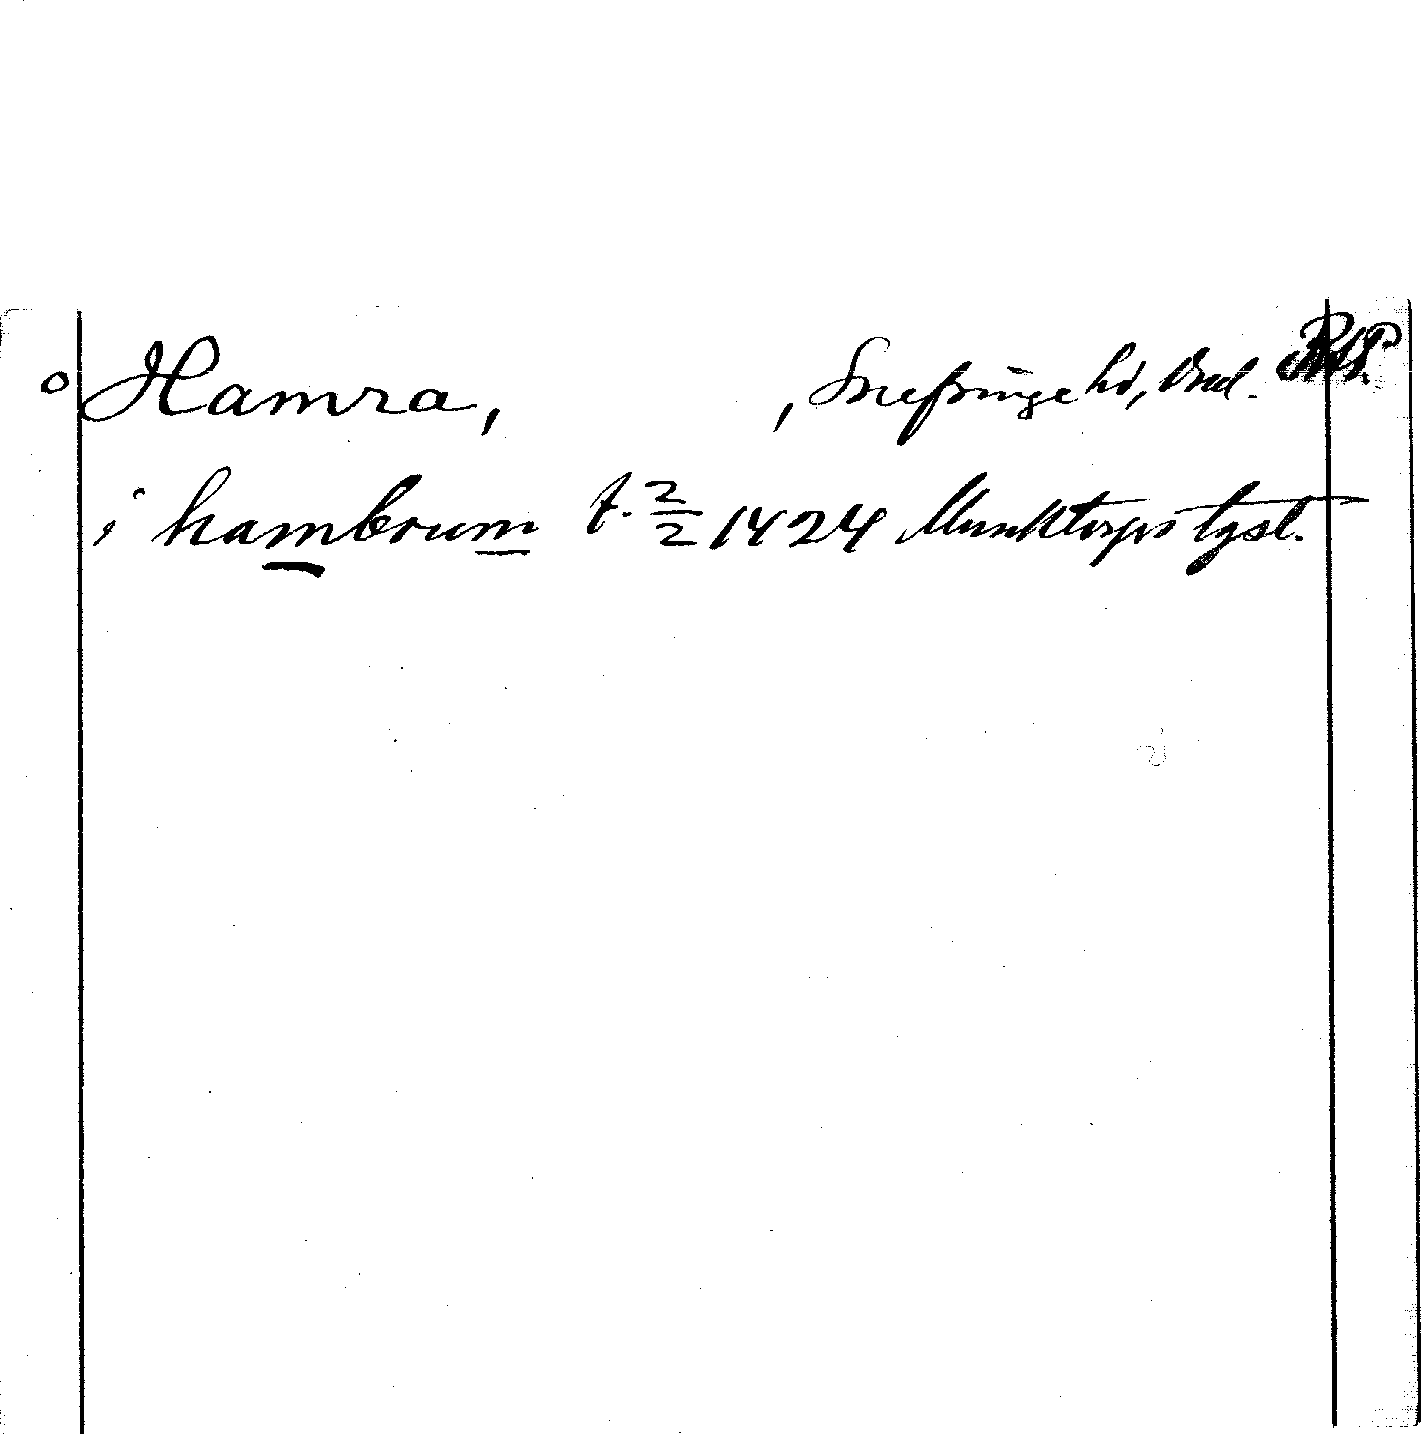 o Hamra, , Snefringe hd, Vml.
i hambrum t. 2/2 1424 Munktorps tgsl.